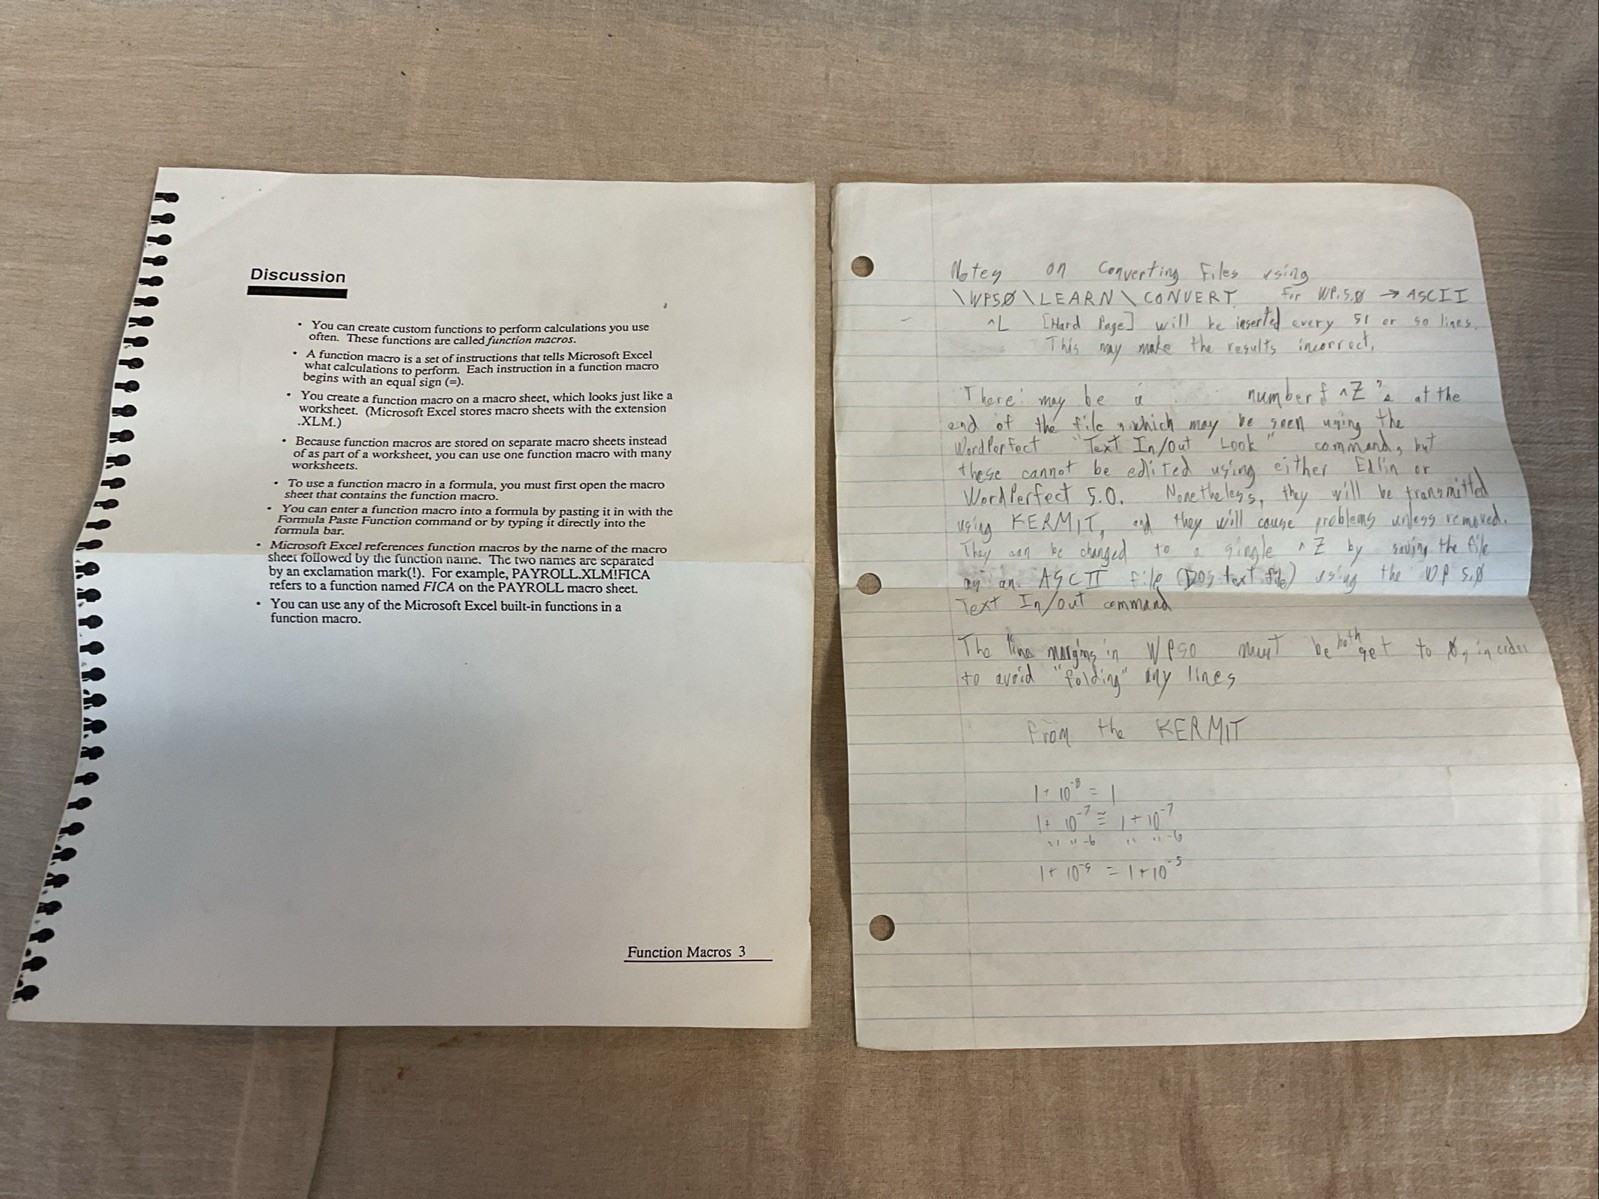 Discussion
• You can create custom functions to perform calculations you use
often. These functions are called function macros.
• A function macro is a set of instructions that tells Microsoft Excel
what calculations to perform. Each instruction in a function macro
begins with an equal sign (=).
• You create a function macro on a macro sheet, which looks just like a
worksheet. (Microsoft Excel stores macro sheets with the extension
.XLM.)
• Because function macros are stored on separate macro sheets instead
of as part of a worksheet, you can use one function macro with many
worksheets.
• To use a function macro in a formula, you must first open the macro
sheet that contains the function macro.
• You can enter a function macro into a formula by pasting it in with the
Formula Paste Function command or by typing it directly into the
formula bar.
• Microsoft Excel references function macros by the name of the macro
sheet followed by the function name. The two names are separated
by an exclamation mark(!). For example, PAYROLL.XLM!FICA
refers to a function named FICA on the PAYROLL macro sheet.
• You can use any of the Microsoft Excel built-in functions in a
function macro.
Function Macros 3
Notes on Converting Files using
\WP5Ø\LEARN\CONVERT for WP.5.Ø → ASCII
^L [Hard Page] will be inserted every 51 or so lines.
This may make the results incorrect.
There may be a number of ^Z's at the
end of the file, which may be seen using the
WordPerfect "Text In/Out Look" command, but
these cannot be edited using either Edlin or
WordPerfect 5.0. Nonetheless, they will be transmitted
using KERMIT, and they will cause problems unless removed.
They can be changed to a single ^Z by saving the file
as an ASCII file (Dos text file) using the WP 5.Ø
Text In/Out command
The line margins in WP50 must be both set to Ø, in order
to avoid "folding" any lines
From the KERMIT
1+10⁻⁸ = 1
1+10⁻⁷ ≅ 1+10⁻⁷
" " -6 " " -6
1+10⁻⁵ = 1+10⁻⁵